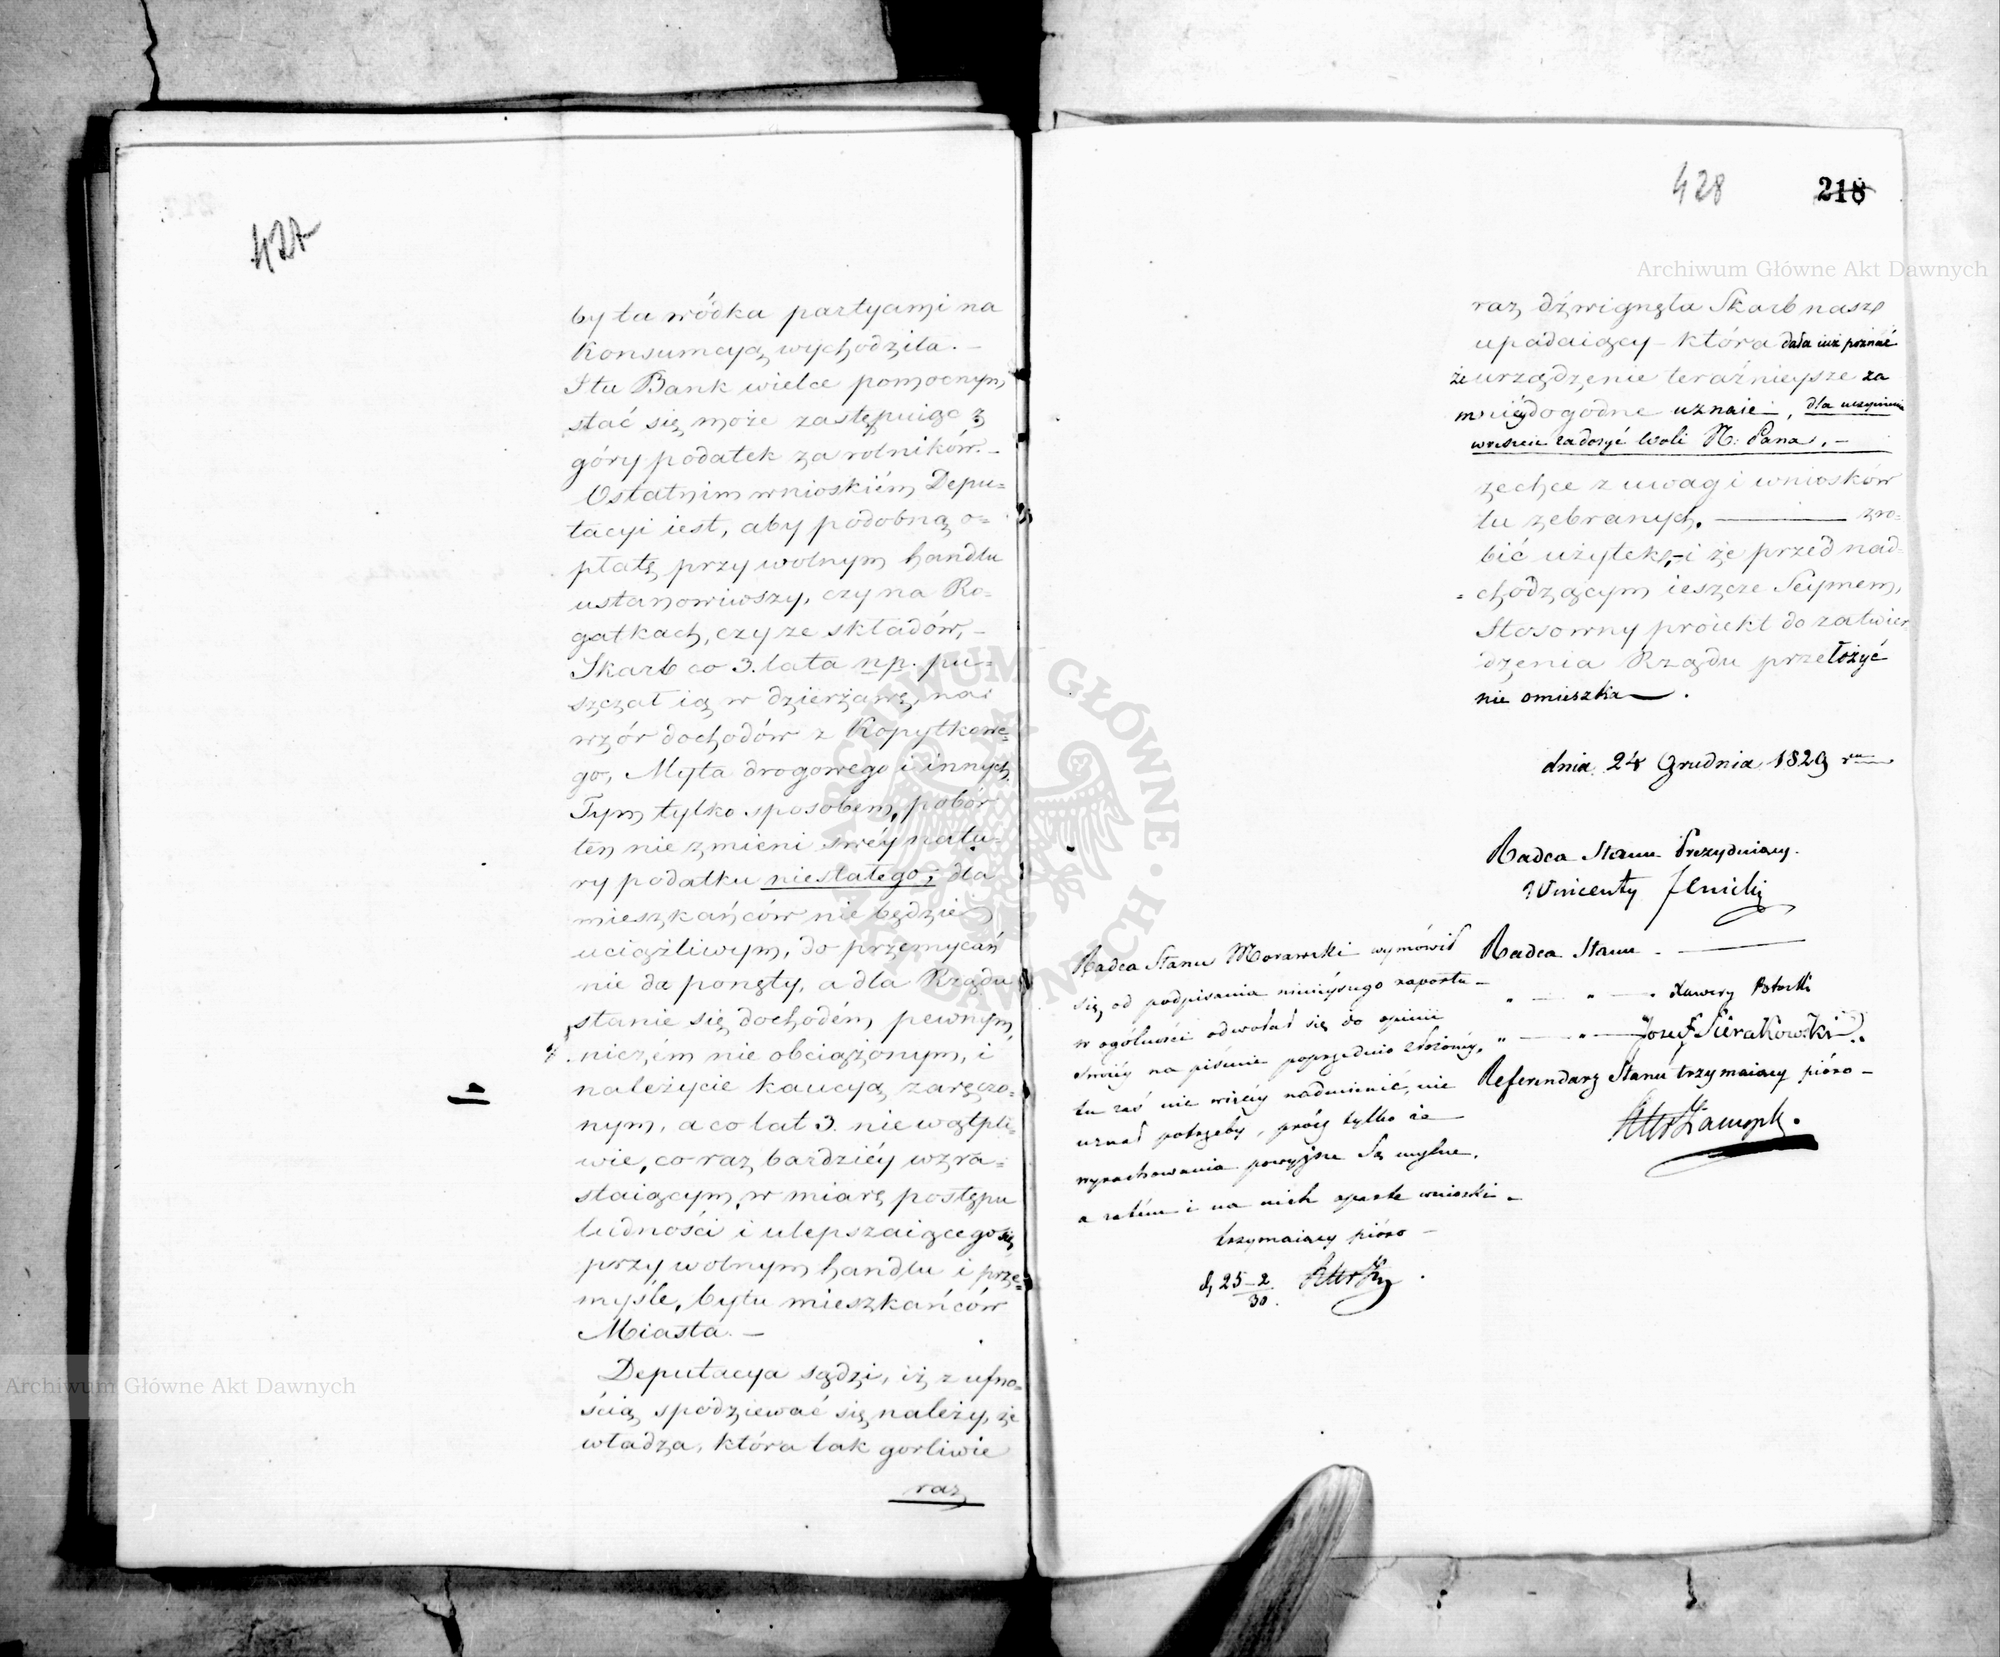 427
by ta wódka partyami na
Konsumcyą wychodziła. –
I tu Bank wielce pomocnym
stać się może zastępuiąc z
góry podatek za rolników. –
Ostatnim wnioskiém Depu=
tacyi iest, aby podobną o=
płatę przy wolnym handlu
ustanowiwszy, czy na Ro=
gatkach, czy ze składów, –
Skarb co 3. lata np. pu=
szczał ią w dzierżawę, na
wzór dochodów z Kopytkowe=
go, Myta drogowego i innych
Tym tylko sposobem, pobór
ten nie zmieni swéy natu=
ry podatku niestałego; dla
mieszkańców nie będzie
uciążliwym, do przemycań
nie da ponęty, a dla Rządu
stanie się dochodém pewnym,
niczém nie obciążonym, i
należycie kaucyą zaręczo=
nym, a co lat 3. niewątpli=
wie, co raz bardziéy wzra=
staiącym, w miarę postępu
ludności i ulepszaiącego się
przy wolnym handlu i prze=
myśle, bytu mieszkańców
Miasta. –
Deputacya sądzi, iż z ufno=
ścią spodziewać się należy, że
władza, która tak gorliwie
raz
428 218
raz dźwignęła Skarb nasz
upadaiący – która dała iuż poznać
że urządzenie teraźnieysze za
niedogodne uznaie, dla uczynienia
wreszcie zadosyć Woli N: Pana, –
zechce z uwag i wniosków
tu zebranych. — zro=
bić użytek, – i że przed nad=
chodzącym ieszcze Seymem,
Stosowny proiekt do zatwier
dzenia Rządu przełożyć
nie omieszka .
dnia 24 Grudnia 1829 r
Radca Stanu Prezyduiący.
Wincenty
Radca Stanu —
" — " — Xawery Potocki
" — " — Jozef Sierakowski
Referendarz Stanu trzymaiący pióro –
Radca Stanu Morawski wymówił
się od podpisania ninieyszego raportu –
w ogólności odwołał się do opinii
swoiéy na piśmie poprzednio złożonéy,
tu zaś nic więcéy nadmienić nie
uznał potrzeby, prócz tylko że
wyrachowania powyższe są mylne,
a zatém i na nich oparte wnioski –
trzymaiący pióro –
d, 25 – 2
30.
Archiwum Główne Akt Dawnych
Archiwum Główne Akt Dawnych
ARCHIWUM GŁÓWNE AKT DAWNYCH